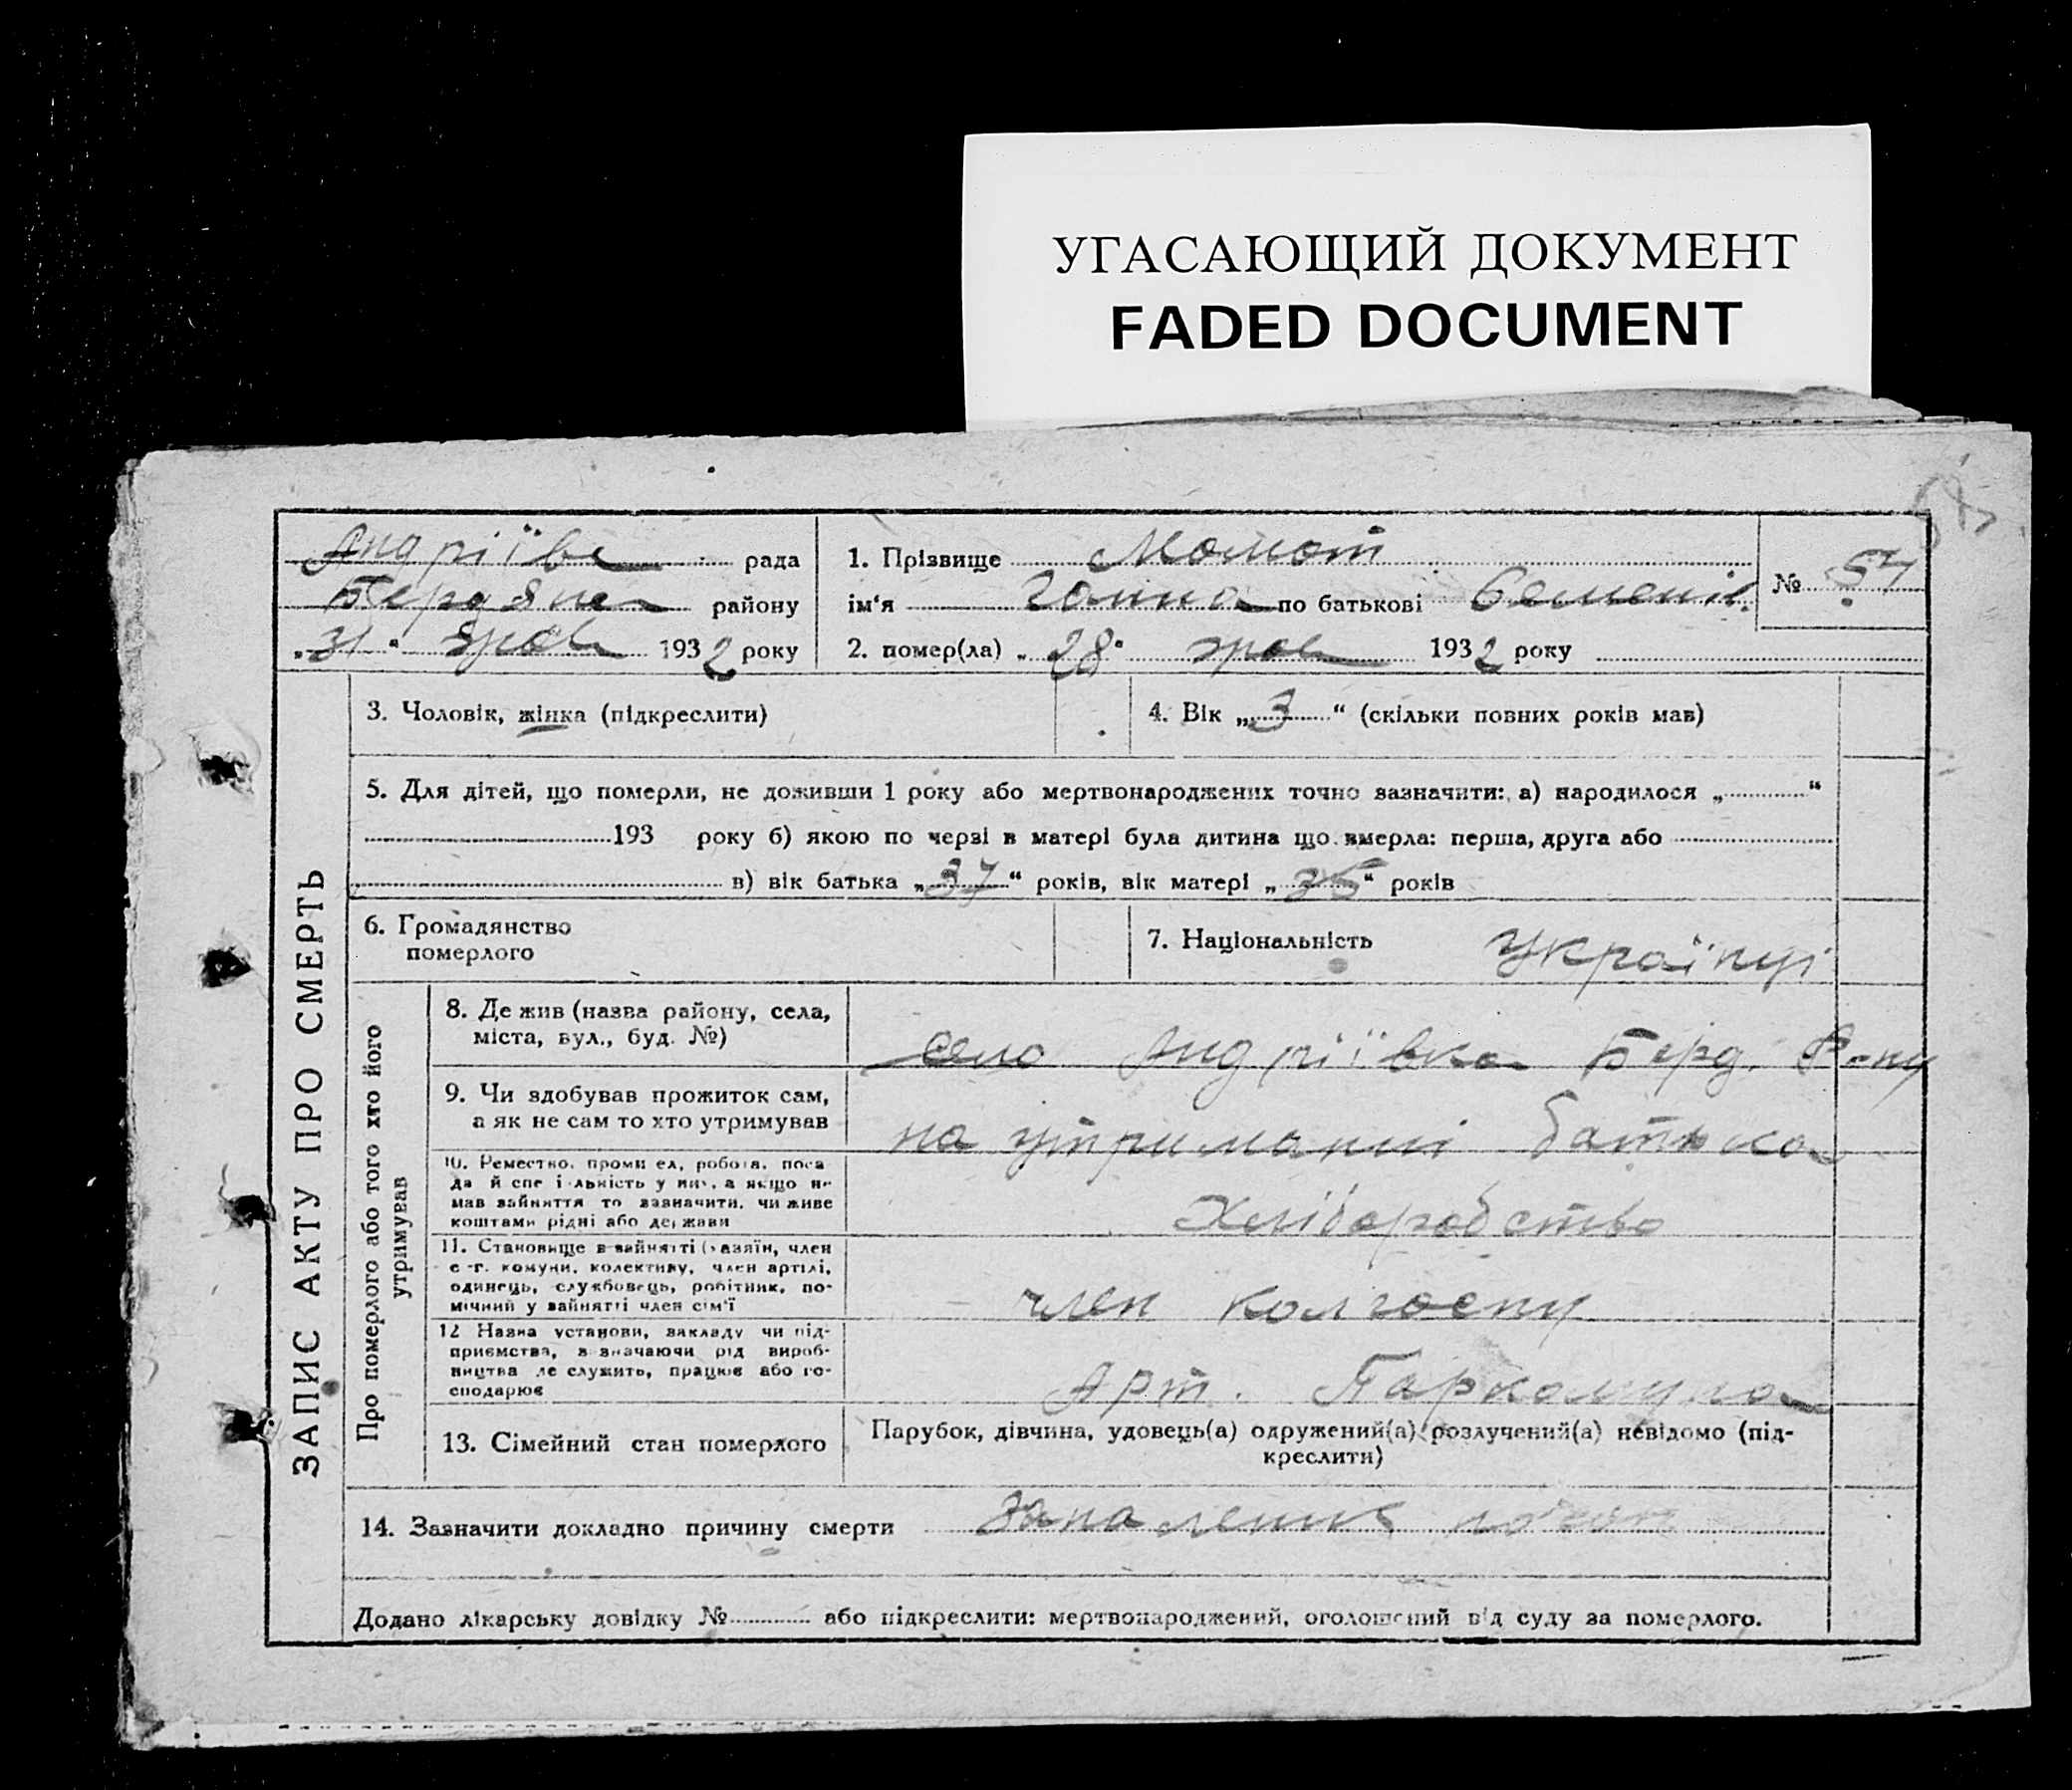 УГАСАЮЩИЙ ДОКУМЕНТ
FADED DOCUMENT
Андріївс рада
Бердянс району
„31“ 1932 року
1. Прізвище Момот
ім‘я Ганна по батькові Семенів.
2. помер(ла) „28“ 1932 року
№ 54
ЗАПИС АКТУ ПРО СМЕРТЬ
3. Чоловік, жінка (підкреслити)
4. Вік „3“ (скільки повних років мав)
5. Для дітей, що померли, не доживши 1 року або мертвонароджених точно зазначити: а) народилося „ “
193 року б) якою по черзі в матері була дитина що вмерла: перша, друга або
в) вік батька „37“ років, вік матері „35“ років
6. Громадянство
померлого
7. Національність Українці
Про померлого або того хто його
утримував
8. Де жив (назва району, села,
міста, вул., буд. №)
село Андріївка Берд. Р-ну
9. Чи здобував прожиток сам,
а як не сам то хто утримував
на утриманні батька
10. Ремество, промисел, робота, поса
да й спеціальність у них, а якщо не
мав зайняття то зазначити, чи живе
коштами рідні або держави
Хліборобство
11. Становище в зайнятті (хазяїн, член
с-г. комуни, колективу, член артілі,
одинець, службовець, робітник, по-
мічний у зайнятті член сім‘ї
член колгоспу
12 Назва установи, закладу чи під-
приємства, зазначаючи рід вироб-
ництва де служить, працює або го-
сподарює
Арт.
13. Сімейний стан померлого
Парубок, дівчина, удовець(а) одружений(а) розлучений(а) невідомо (під-
креслити)
14. Зазначити докладно причину смерти Запалення
Додано лікарську довідку № або підкреслити: мертвонароджений, оголошений від суду за померлого.